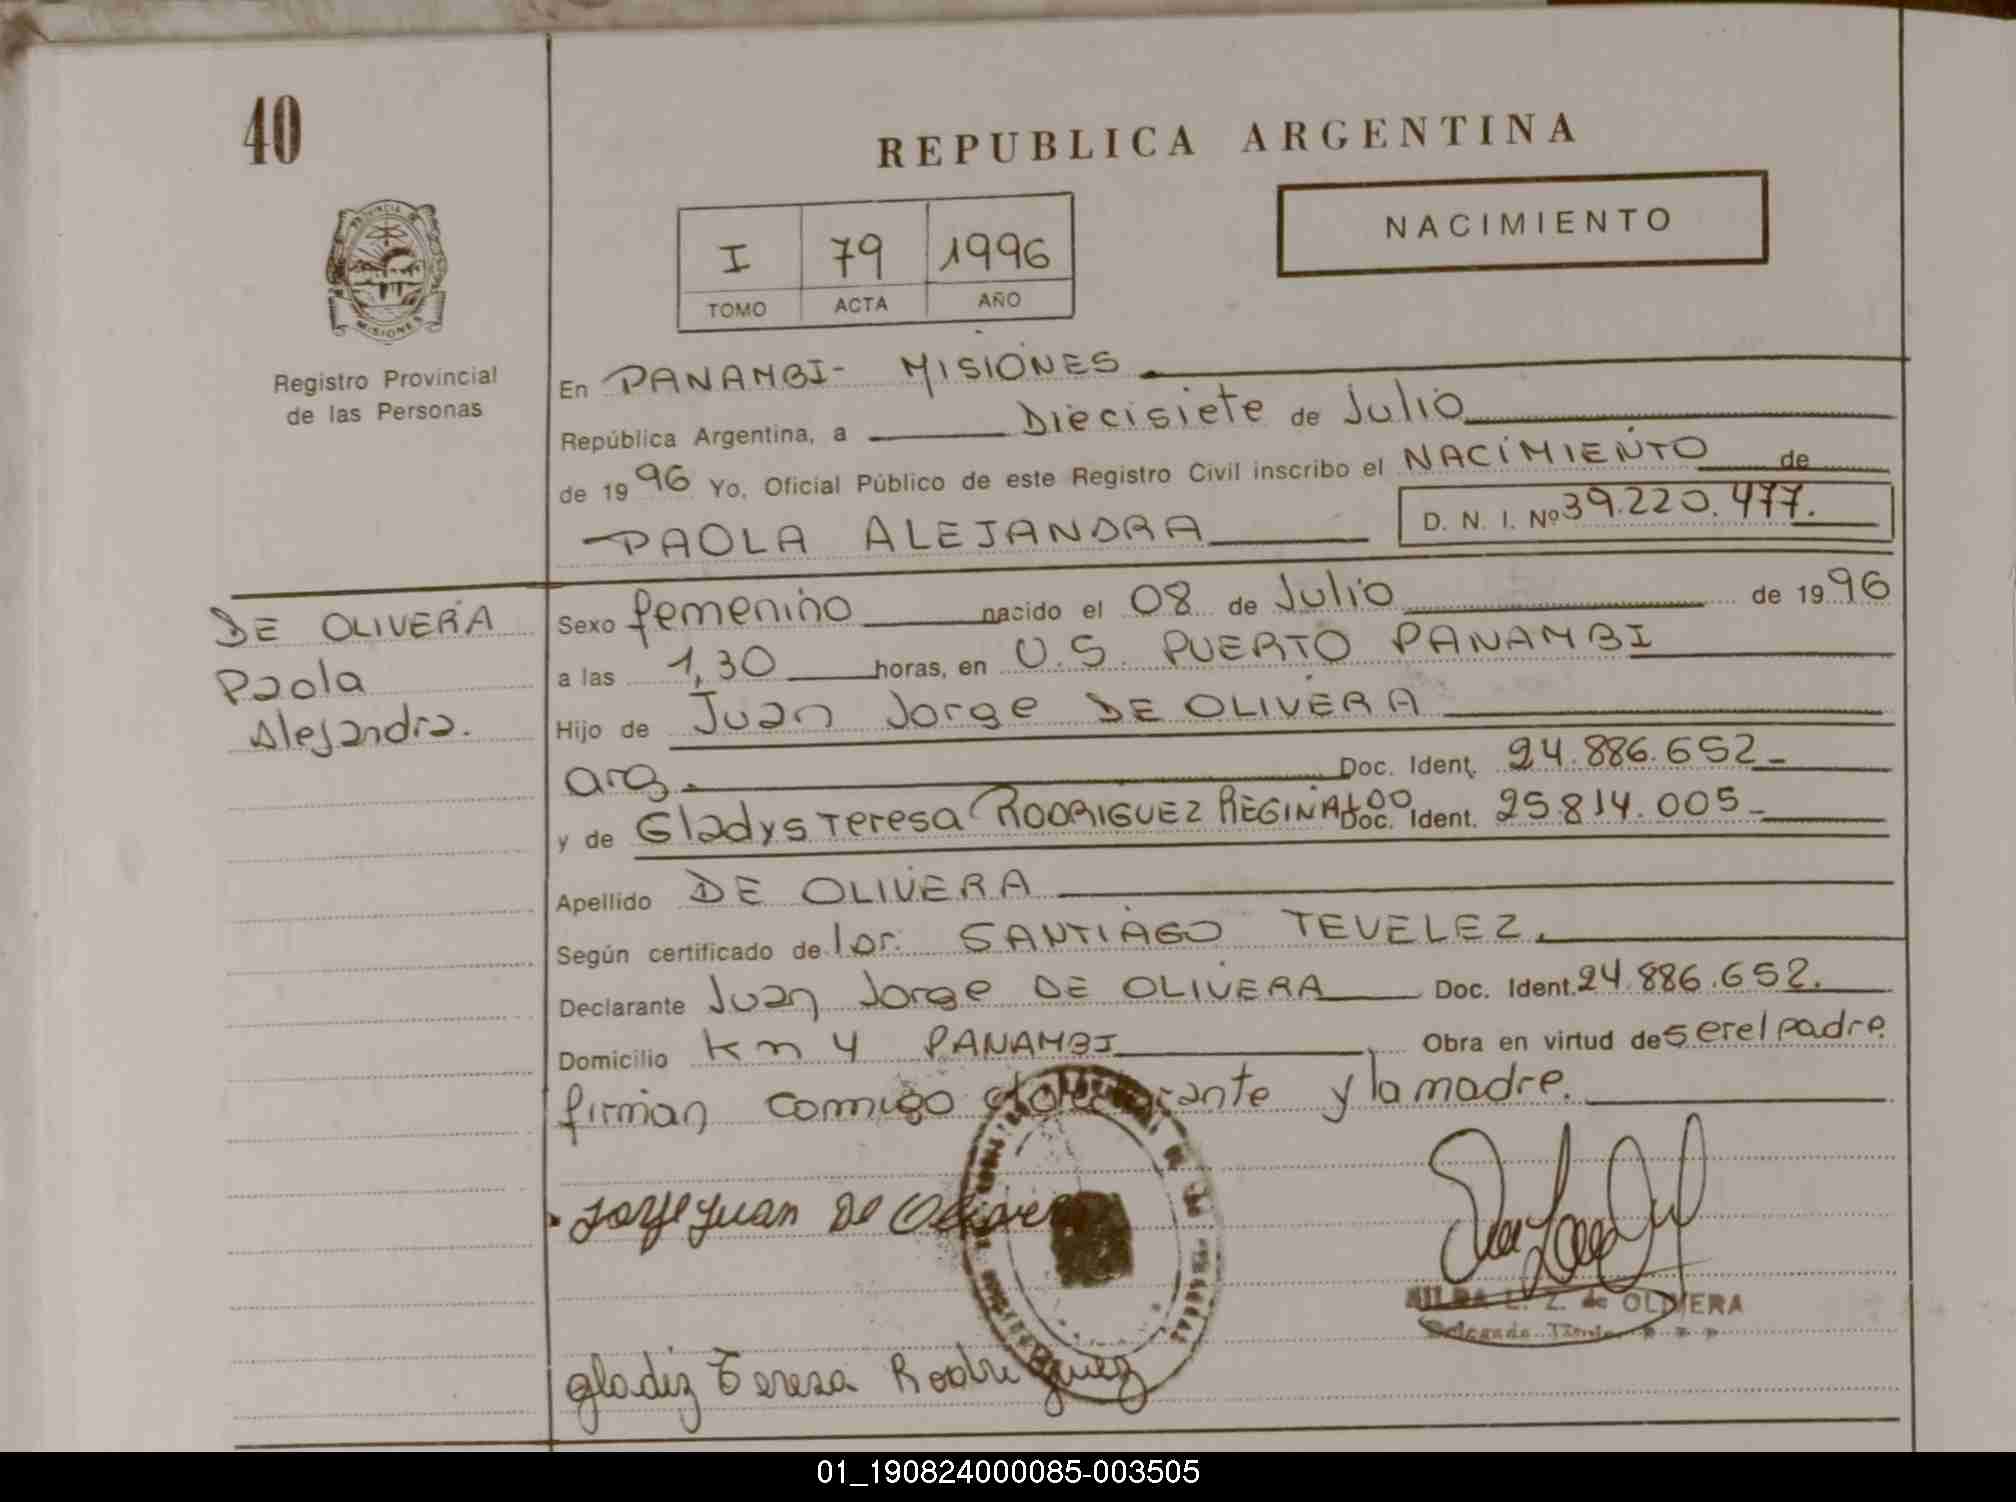 40
REPUBLICA ARGENTINA
PROVINCIA DE
MISIONES
Registro Provincial
de las Personas
I 79 1996
TOMO ACTA AÑO
NACIMIENTO
En PANAMBI- MISIONES
República Argentina, a Diecisiete de Julio
de 1996 Yo, Oficial Público de este Registro Civil inscribo el NACIMIENTO de
PAOLA ALEJANDRA D. N. I. Nº 39.220.477.
DE OLIVERA
Paola
Alejandra.
Sexo femenino nacido el 08 de Julio de 1996
a las 1,30 horas, en U.S. PUERTO PANAMBI
Hijo de Juan Jorge DE OLIVERA
arg. Doc. Ident. 24.886.652-
y de Gladys Teresa RODRIGUEZ REGINALDO Doc. Ident. 25.814.005-
Apellido DE OLIVERA
Según certificado de SANTIAGO TEVELEZ.
Declarante Juan Jorge DE OLIVERA Doc. Ident. 24.886.652.
Domicilio Km 4 PANAMBI Obra en virtud de ser el padre.
firman conmigo declarante y la madre.
Jorge Juan De Olivera
L. Z. de OLIVERA
gladiz Teresa Rodriguez
01_190824000085-003505